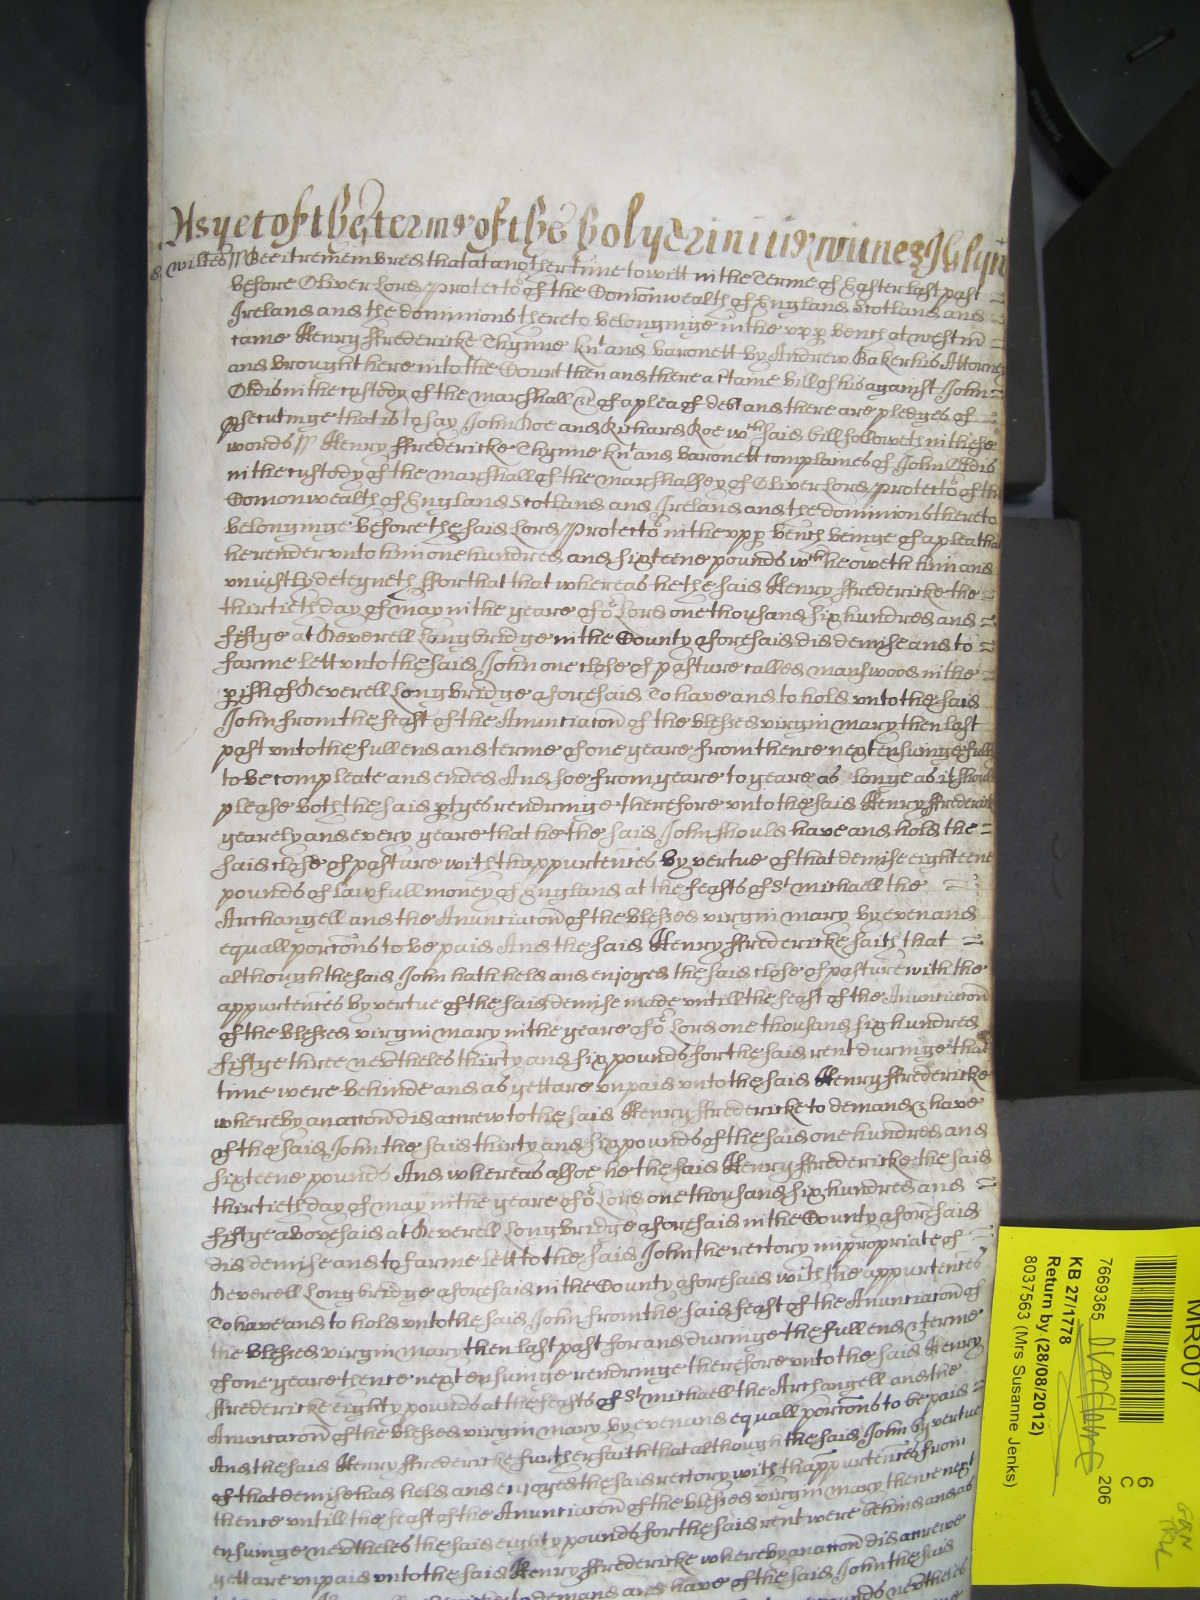 As yet of the terme of the holy Trinitie witnes
Wiltes ss Bee it remembred that at another time to witt in the Terme of Easter last past
before Oliver Lord Protector of the Comonwealth of England Scotland and
Ireland and the dominions thereto belonginge in the upp bench at westm
came Henry ffredericke Thynne knt and baronett by Andrew Baker his Attorney
and brought here into the Court then and there a ctaine bill of his against John
Oldis in the custody of the marshall &c of a plea of debt and there are pledges of
psecutinge that is to say John Doe and Richard Roe wch said bill followeth in these
words ss Henry ffredericke Thynne knt and baronett complaines of John Oldis
in the custody of the marshall of the marshalsey of Oliver Lord Protector of the
Comonwealth of England Scotland and Ireland and the dominions thereto
belonginge before the said Lord Protector in the upp bench beinge of a plea that
he render unto him one hundred and sixteene pounds wch he oweth him and
uniustly deteyneth ffor that that whereas he the said Henry ffredericke the
thirtieth day of may in the yeare of or Lord one thousand six hundred and
fiftye at Deverell Longbridge in the County aforesaid did demise and to
farme lett unto the said John one close of pasture called manswood in the
pish of Deverell Longbridge aforesaid To have and to hold unto the said
John from the feast of the Anunciacon of the blessed virgin mary then last
past unto the full end and terme of one yeare from thence next ensuinge fully
to be compleate and ended And soe from yeare to yeare as longe as it should
please both the said ptyes rendringe therefore unto the said Henry ffredericke
yearely and every yeare that he the said John should have and hold the
said close of pasture with thappurtences by vertue of that demise eighteene
pounds of lawfull money of England at the feasts of St michaell the
Archangell and the Anunciacon of the blessed virgin mary by even and
equall porcons to be paid And the said Henry ffredericke saith that
although the said John hath held and enjoyed the said close of pasture with the
appurtences by vertue of the said demise made untill the feast of the Anunciacon
of the blessed virgin mary in the yeare of or Lord one thousand six hundred
fiftye three nevtheles thirty and six pounds for the said rent duringe that
time were behinde and as yett are unpaid unto the said Henry ffredericke
whereby an accon did accrew to the said Henry ffredericke to demand & have
of the said John the said thirty and six pounds of the said one hundred and
sixteene pounds And whereas alsoe he the said Henry ffredericke the said
thirtieth day of may in the yeare of or Lord one thousand six hundred and
fiftye abovesaid at Deverell Longbridge aforesaid in the County aforesaid
did demise and to farme lett to the said John the rectory impropriate of
Deverell Longbridge aforesaid in the County aforesaid with the appurtences
To have and to hold unto the said John from the said feast of the Anunciacon of
the blessed virgin mary then last past for and duringe the full end & terme
of one yeare thence next ensuinge rendringe therefore unto the said Henry
ffredericke eighty pounds at the feasts of St michaell the Archangell and the
Anunciacon of the blessed virgin mary by even and equall porcons to be paid
And the said Henry ffredericke further saith that although the said John by vertue
of that demise had held and enjoyed the said rectory with thappurtences from
thence untill the feast of the Anunciacon of the blessed virgin mary thence next
ensuinge nevtheles the said eighty pounds for the said rent were behind and as
yett are unpaid unto the said Henry ffredericke whereby an accon did accrewe
to demand and have of the said John the said
PHILIPS
MR007
6
C
206
7669365
KB 27/1778
Return by (28/08/2012)
8037563 (Mrs Susanne Jenks)